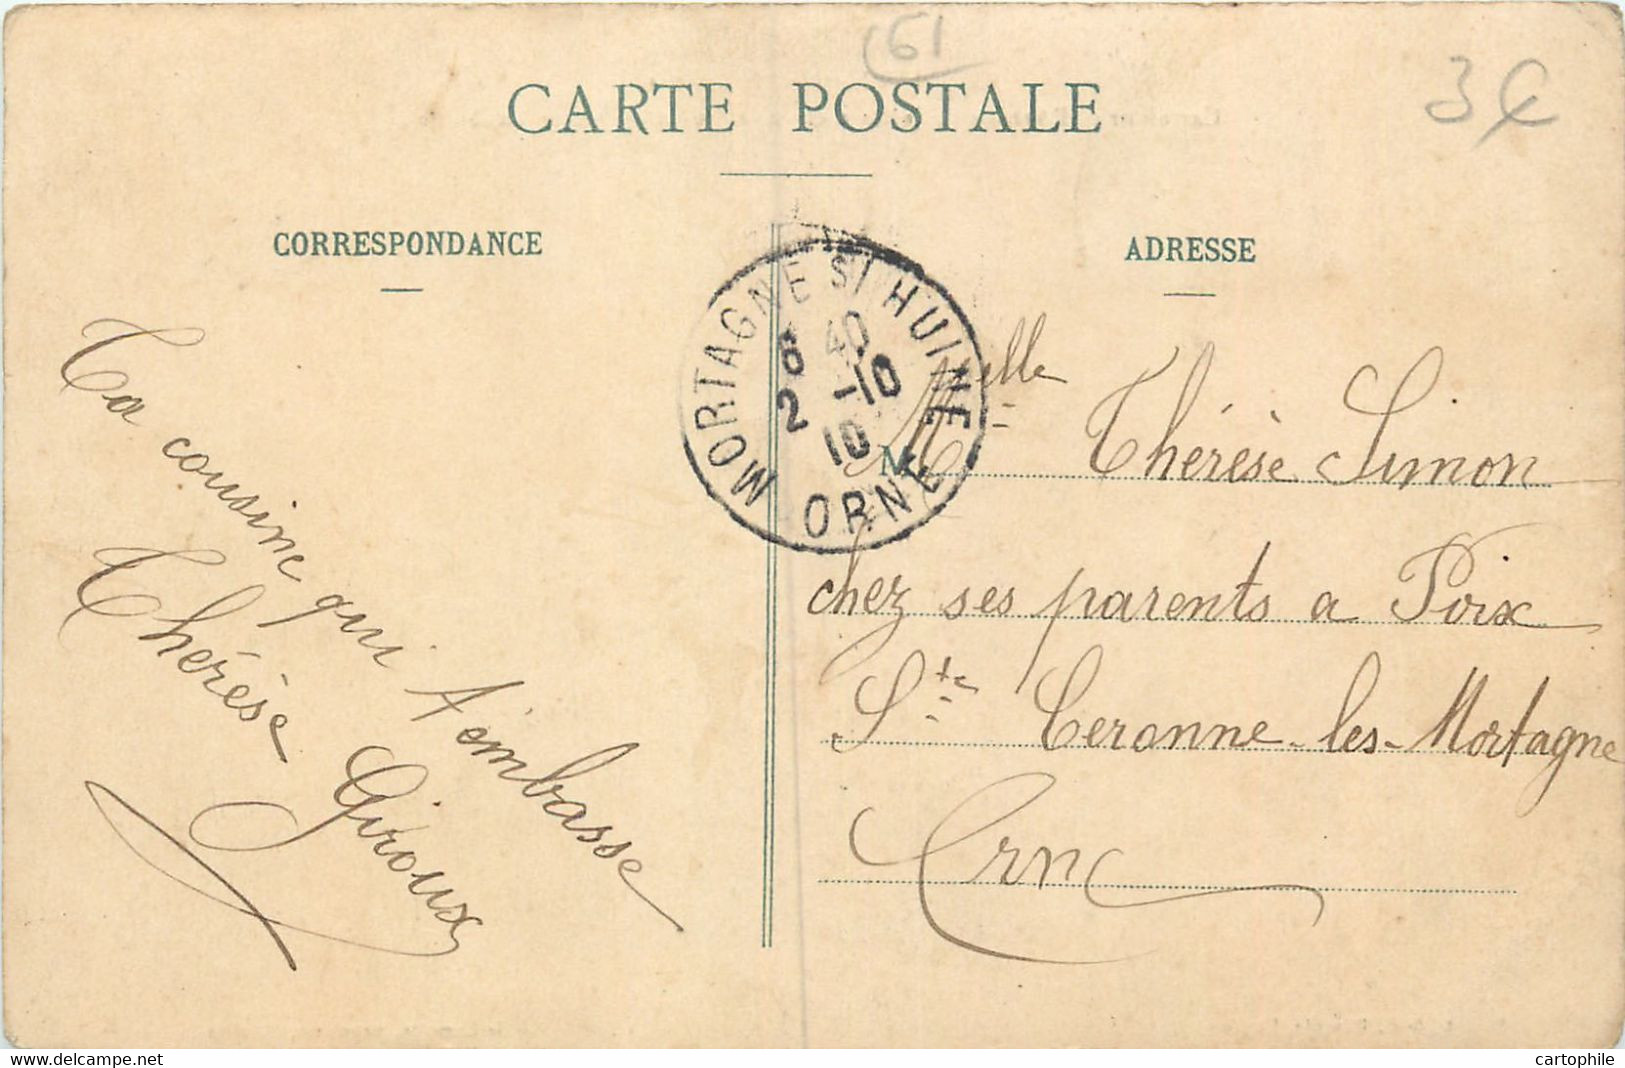 61
3€
CARTE POSTALE
CORRESPONDANCE
Ta cousine qui t'embasse
Thérèse Giroux
MORTAGNE S/ HUINE
8 40
2 -10
10
ORNE
ADRESSE
Melle Thérèse Simon
chez ses parents a Poix
Ste Ceronne-les-Mortagne
Orne
www.delcampe.net
cartophile